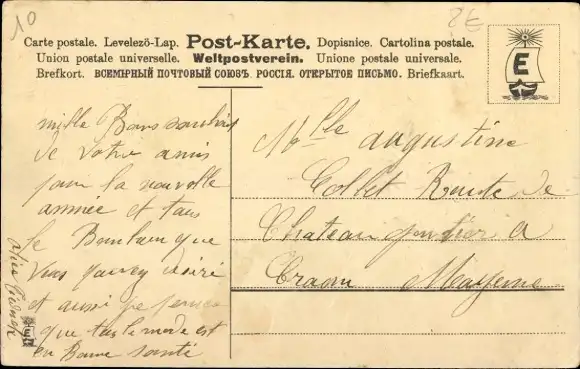 10
2€
Carte postale. Levelező-Lap. Post-Karte. Dopisnice. Cartolina postale.
Union postale universelle. Weltpostverein. Unione postale universale.
Brefkort. ВСЕМІРНЫЙ ПОЧТОВЫЙ СОЮЗЪ. РОССІЯ. ОТКРЫТОЕ ПИСЬМО. Briefkaart.
E
mille Bons souhaits
de votre amis
pour la nouvelle
année et tous
le Bonheur que
vous
et aussi je pense
que tout le monde est
en Bonne santé
Mlle augustine
Collet Route de
Chateau gontier a
Craon Mayenne